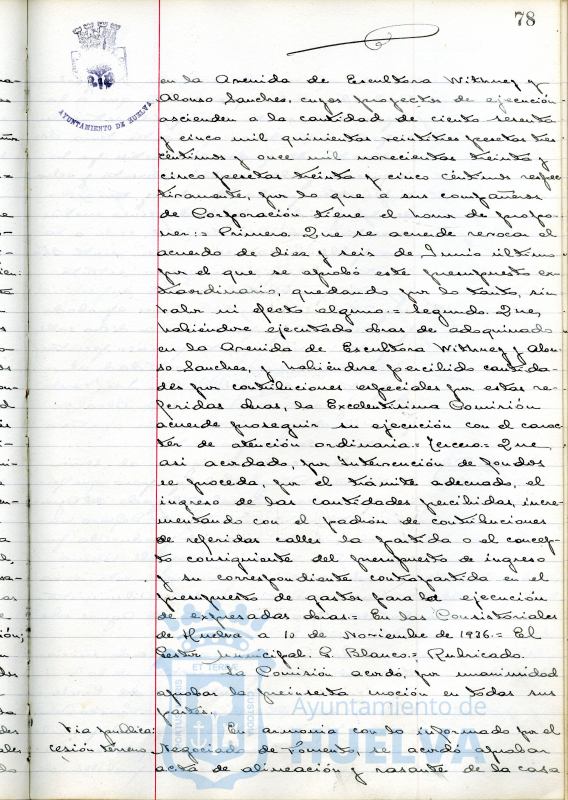 78
AYUNTAMIENTO DE HUELVA
en la Avenida de Escultora Withney y
Alonso Sanches, cuyos proyectos de ejecución
ascienden a la cantidad de ciento sesenta
y cinco mil quinientas veintitres pesetas tres
céntimos y once mil novecientas treinta y
cinco pesetas treinta y cinco céntimos respec
tivamente, por lo que a sus compañeros
de Corporación tiene el honor de propo-
ner:= Primero. Que se acuerde revocar el
acuerdo de diez y seis de Junio último
por el que se aprobó este presupuesto ex-
traordinario, quedando por lo tanto, sin
valor ni efecto alguno.= Segundo. Que,
habiéndose ejecutado obras de adoquinado
en la Avenida de Escultora Withney y Alon-
so Sanches, y habiéndose percibido cantida-
des por contribuciones especiales por estas re-
feridas obras, la Excelentísima Comisión
acuerde proseguir su ejecución con el carac-
ter de atención ordinaria.= Tercero.= Que,
asi acordado, por Intervención de fondos
se proceda, por el trámite adecuado, el
ingreso de las cantidades percibidas, incre-
mentando con el padrón de contribuciones
de referidas calles la partida o el concep-
to consiguiente del presupuesto de ingreso
y su correspondiente contrapartida en el
presupuesto de gastos para la ejecución
de expresadas obras.= En las Consistoriales
de Huelva a 10 de Noviembre de 1936.= El
Gestor Municipal. P. Blanco.= Rubricado.
La Comisión acordó, por unanimidad
aprobar la preinserta moción en todas sus
partes.
Via publica: En armonia con lo informado por el
cesión terreno Negociado de Fomento, se acordó aprobar
acta de alineación y rasante de la casa
Ayuntamiento de
HUELVA